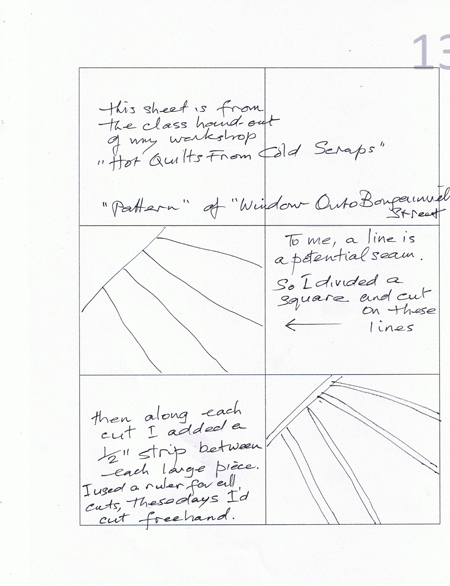 13
this sheet is from
the class hand-out
of my workshop
"Hot Quilts From Cold Scraps"
"Pattern" of "Window Onto Bougainvil
Street
To me, a line is
a potential seam.
So I divided a
square and cut
on these
lines
then along each
cut I added a
1/2" strip between
each large piece.
I used a ruler for all
cuts, these days I'd
cut freehand.